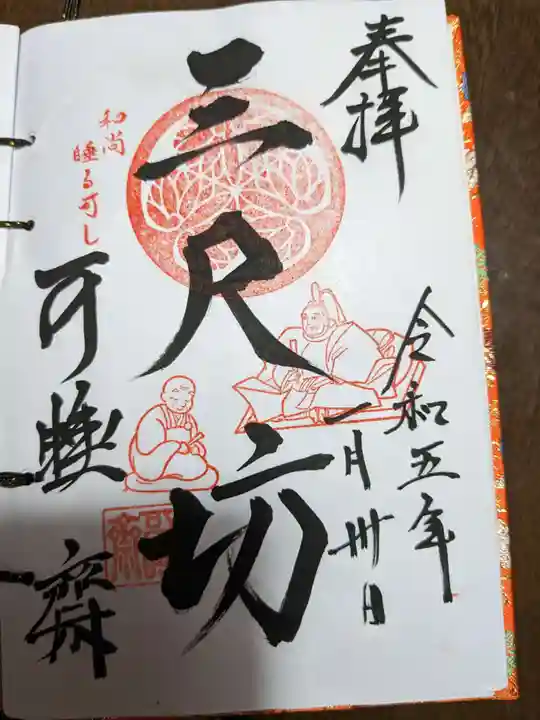 奉拝
令和五年
一月卅日
三尺坊
可睡齋
和尚
睡る可し